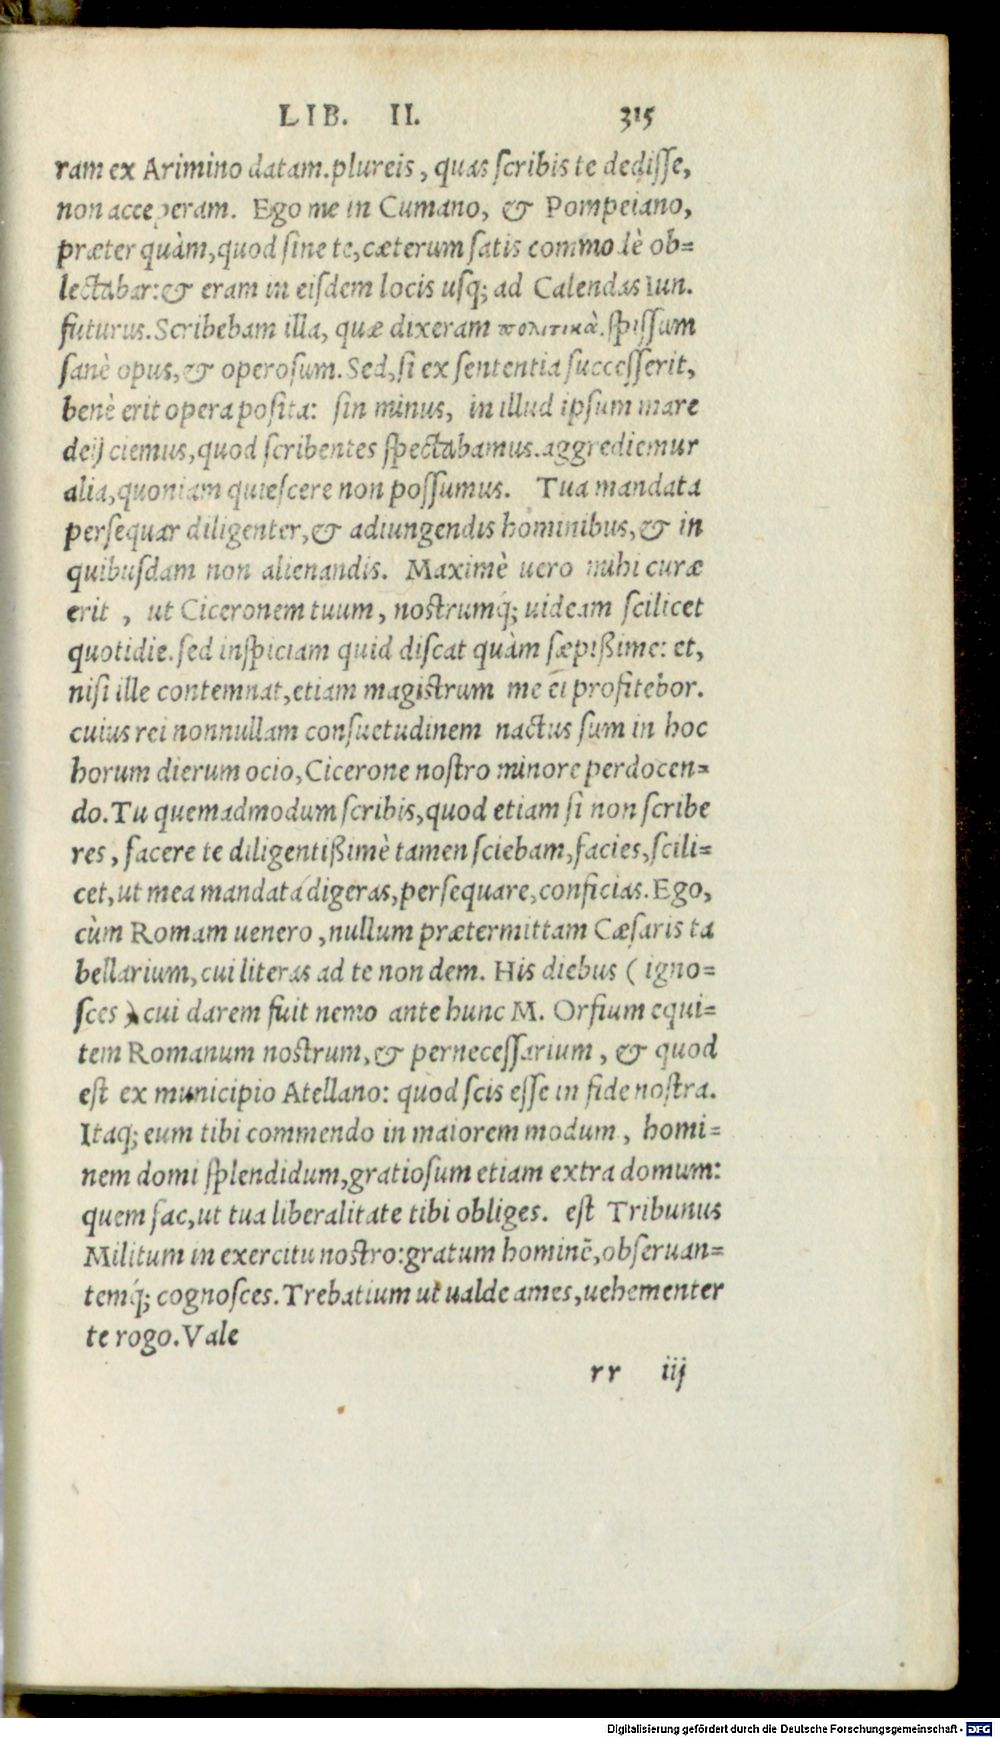 LIB. II. 315
ram ex Arimino datam. plureis, quas scribis te dedisse,
non acceperam. Ego me in Cumano, & Pompeiano,
præter quàm, quod sine te, cæterum satis commodè ob=
lectabar: & eram in eisdem locis usq; ad Calendas Iun.
futurus. Scribebam illa, quæ dixeram πολιτικὰ. spissum
sanè opus, & operosum. Sed, si ex sententia successerit,
benè erit opera posita: sin minus, in illud ipsum mare
deijciemus, quod scribentes spectabamus. aggrediemur
alia, quoniam quiescere non possumus. Tua mandata
persequar diligenter, & adiungendis hominibus, & in
quibusdam non alienandis. Maximè uero mihi curæ
erit, ut Ciceronem tuum, nostrumq́; uideam scilicet
quotidie. sed inspiciam quid discat quàm sæpißime: et,
nisi ille contemnat, etiam magistrum me ei profitebor.
cuius rei nonnullam consuetudinem nactus sum in hoc
horum dierum ocio, Cicerone nostro minore perdocen=
do. Tu quemadmodum scribis, quod etiam si non scribe
res, facere te diligentißimè tamen sciebam, facies, scili=
cet, ut mea mandata digeras, persequare, conficias. Ego,
cùm Romam uenero, nullum prætermittam Cæsaris ta
bellarium, cui literas ad te non dem. His diebus (igno=
sces) cui darem fuit nemo ante hunc M. Orfium equi=
tem Romanum nostrum, & pernecessarium, & quod
est ex municipio Atellano: quod scis esse in fide nostra.
Itaq; eum tibi commendo in maiorem modum, homi=
nem domi splendidum, gratiosum etiam extra domum:
quem fac, ut tua liberalitate tibi obliges. est Tribunus
Militum in exercitu nostro: gratum hominē, obseruan=
temq́; cognosces. Trebatium ut ualde ames, uehementer
te rogo. Vale
rr iij
Digitalisierung gefördert durch die Deutsche Forschungsgemeinschaft - DFG